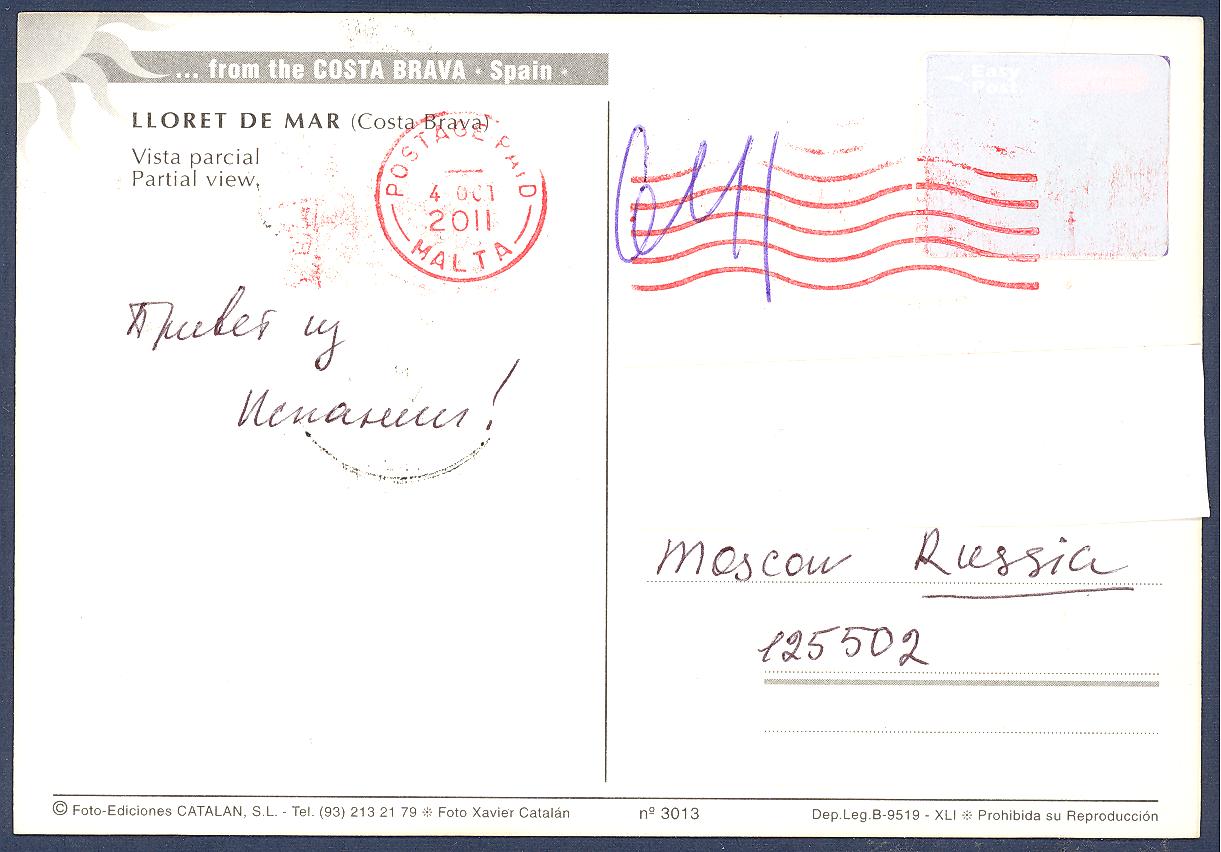 ... from the COSTA BRAVA · Spain ·
LLORET DE MAR (Costa Brava)
Vista parcial
Partial view,
POSTAGE PAID
4 OCT
2011
MALTA
Easy
Post
Привет из
Испании!
Moscow Russia
125502
© Foto-Ediciones CATALAN, S.L. - Tel. (93) 213 21 79 ❊ Foto Xavier Catalán
nº 3013
Dep.Leg.B-9519 - XLI ❊ Prohibida su Reproducción